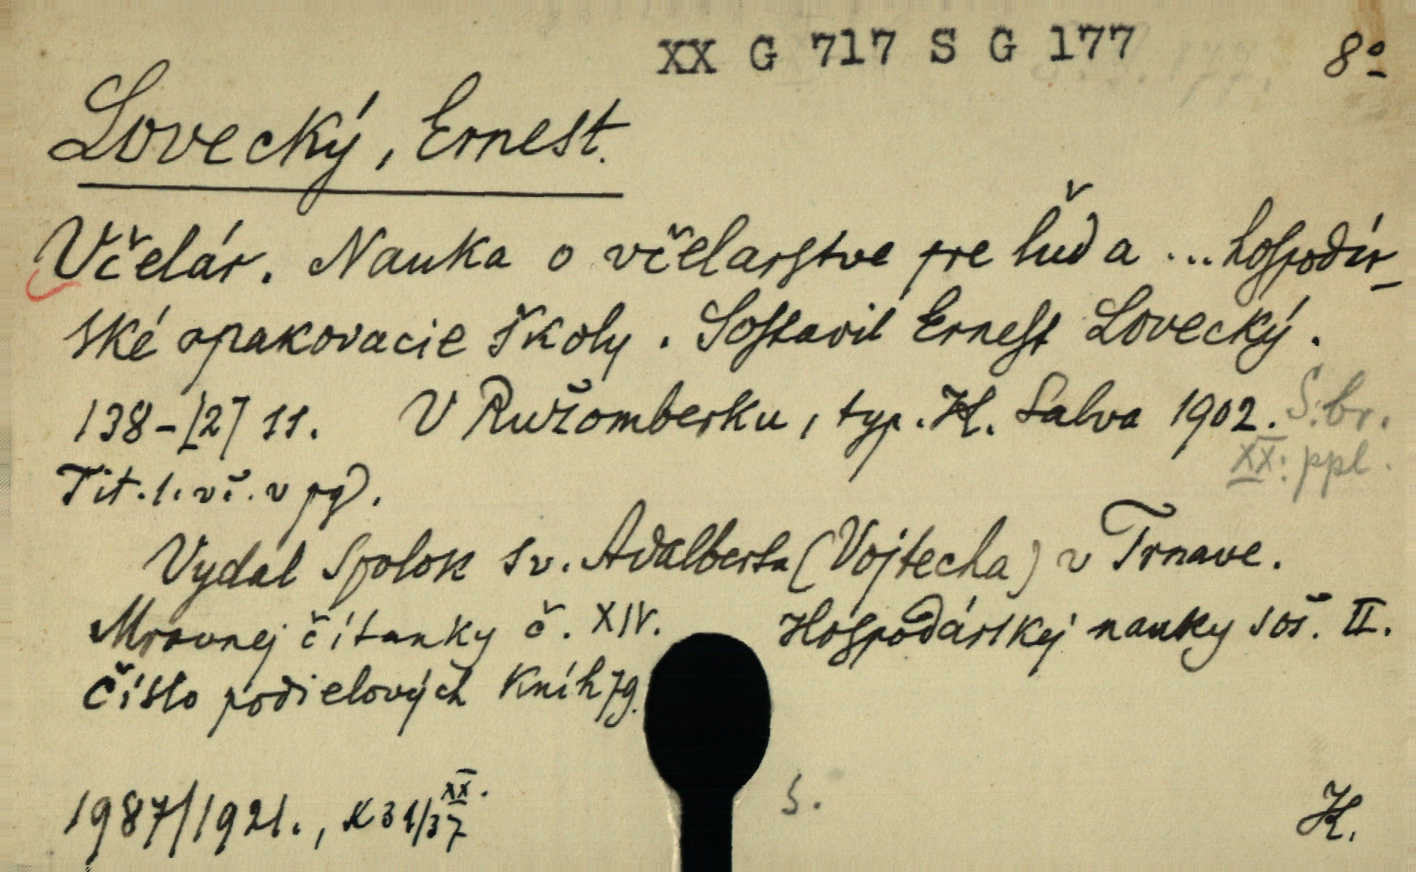 XX G 717 S G 177 8º
Lovecký, Ernest.
Včelár. Nauka o včelarstve pre ľud a ... hospodár-
ské opakovacie školy. Sostavil Ernest Lovecký.
138-[2] ss. V Ružomberku, typ. K. Salva 1902. S. br.
XX. ppl.
Tit. l. vč. v pg).
Vydal Spolok sv. Adalberta (Vojtecha) v Trnave.
Mravnej čítanky č. XIV. Hospodárskej nauky soš. II.
Číslo podielových kníh 79.
1987/1921., K 31/37 XX.
S. K.